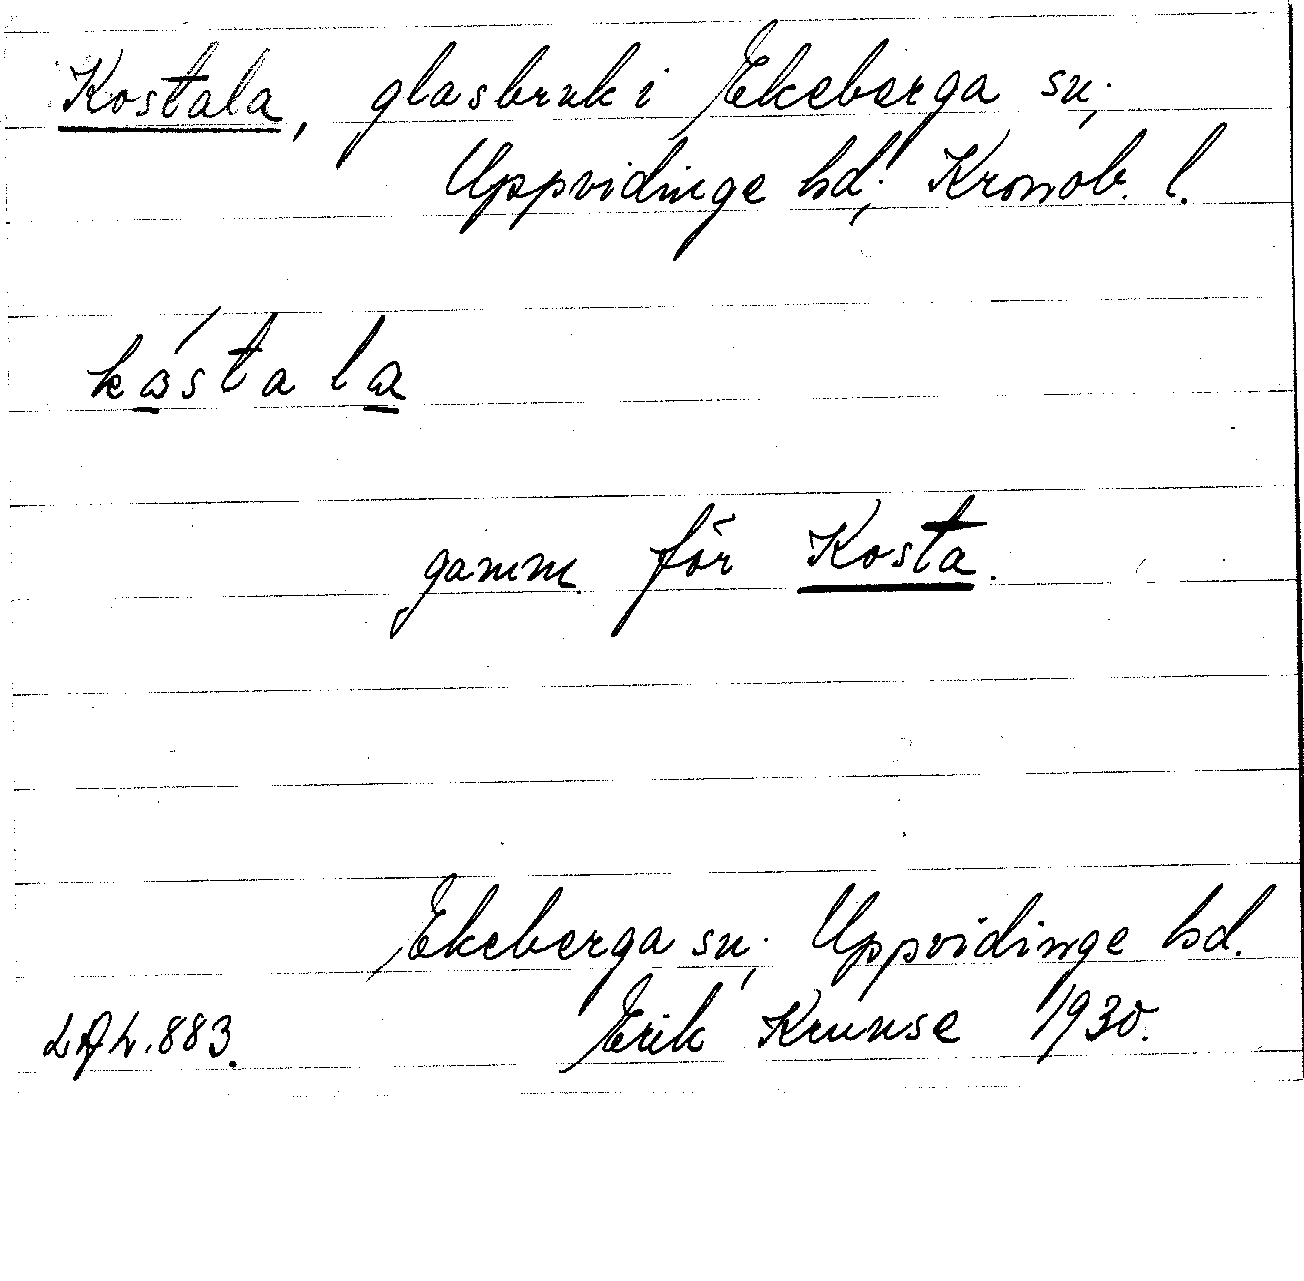 Kostala, glasbruk i Ekeberga sn;
Uppvidinge hd; Kronob. l.
kåstala
gamm. för Kosta.
Ekeberga sn; Uppvidinge hd.
LAL.883. Erik Kruuse 1930.